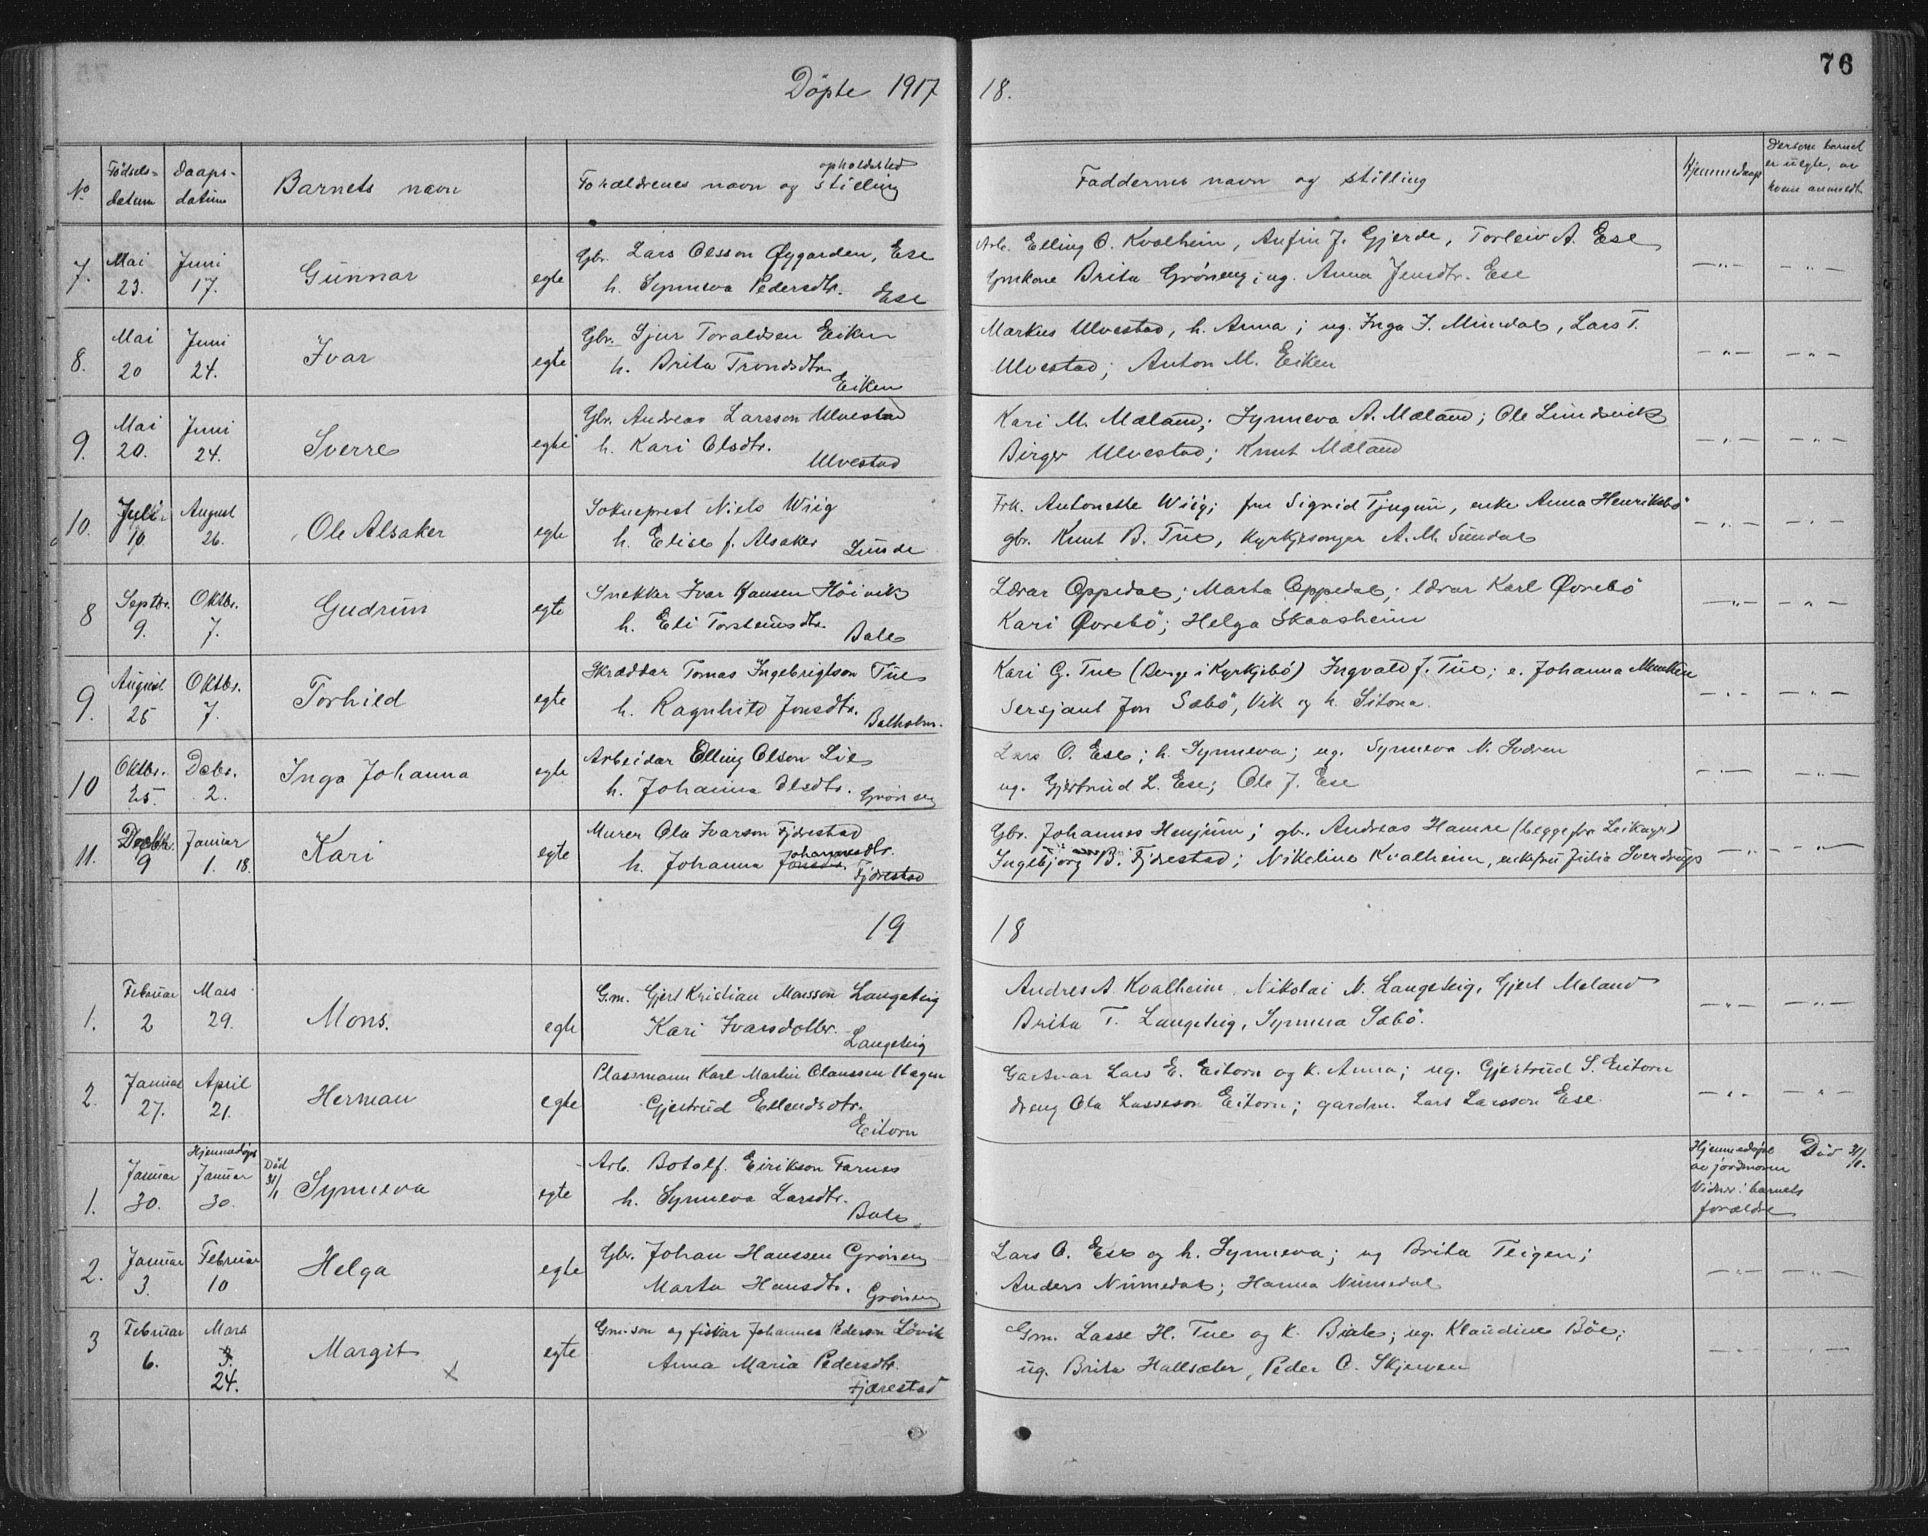 76
Döpte 1917 18.
No
Födsels-
datum
Daaps-
datum
Barnets navn
opholdsted
Forældrenes navn og stilling
Faddernes navn og stilling
Hjemmedaapt
Dersom barnet
er uegte, av
hvem anmeldt
7. Mai 23. Juni 17. Gunnar egte
Gbr. Lars Olsson Øygarden, Ese
h. Synneva Pedersdtr. Ese
Arb. Elling O. Kvalheim, Anfin J. Gjerde, Torleiv A. Ese
Gmkone Brita Gröneng; ug. Anna Jensdtr. Ese
8. Mai 20 Juni 24. Ivar egte
Gbr. Sjur Toraldsen Eiken
h. Brita Trondsdtr. Eiken
Markus Ulvestad, h. Anna; ug. Inga J. Mundal, Lars T.
Ulvestad; Anton M. Eiken
9. Mai 20. Juni 24. Sverre egte
Gbr. Andreas Larsson Ulvestad
h. Kari Olsdtr. Ulvestad
Kari M. Mæland; Synneva A. Mæland; Ole Lundsvik
Birger Ulvestad; Knut Mæland
10. Juli 10. August 26. Ole Alsaker egte
Sokneprest Niels Wiig
h. Elise f. Alsaker Lunde
Frk. Antonette Wiig; fru Sigrid Tjugum, enke Anna Henriksbö
gbr. Knut B. Tue, kyrkjesongar A. M. Sundal
8 Septbr. 9. Oktbr. 7. Gudrun egte
Snekkar Ivar Hansen Höivik
h. Eli Torsteinsdtr. Bale
Lærar Oppedal; Marta Oppedal; lærar Karl Övrebö
Kari Övrebö; Helga Skaasheim
9. August 25 Oktbr. 7. Torhild egte
Skræddar Tomas Ingebrigtson Tue
h. Ragnhild Jonsdtr. Balholm.
Kari G. Tue (Berge i Kyrkjebö) Ingvald J. Tue; e. Johanna
Sersjant Jon Sæbö, Vik og h.
10 Oktbr. 25. Debr. 2. Inga Johanna egte
Arbeidar Elling Olson Lie
h. Johanna Olsdtr. Gröneng
Lars O. Ese; h. Synneva; ug. Synneva N.
ug. Gjertrud L. Ese; Ole J. Ese
11. Decbr. 9 Januar 1. 18. Kari egte
Murer Ola Ivarson Fjærestad
h. Johanna Johannesdtr. Fjærestad
Gbr. Johannes Henjum; gb. Andreas Hamre (begge fra Leikanger)
Ingebjörg B. Fjærestad; Nikoline Kvalheim, enkefru Julia Sverdrup
19 18
1. Februar 2 Mars 29. Mons. egte
Gm. Gjert Kristian Monsson Langeteig
Kari Ivarsdotter. Langeteig
Andres A. Kvalheim, Nikolai N. Langeteig, Gjert Meland
Brita T. Langeteig, Synneva Sæbö.
2. Januar 27. April 21. Herman egte
Plassmann Karl Martin Claussen Hagen
Gjertrud Ellendsdtr. Eitorn
Gartnar Lars E. Eitorn og k. Anna; ug. Gjertrud S. Eitorn
dreng Ola Lasseson Eitorn; gardm. Lars Larsson Ese.
1. Januar 30. Hjemmedöpt Januar 30. Död 31/1 Synneva egte
Arb. Botolf Eirikson Farnes
h. Synneva Larsdtr. Bale
Hjemmedöpt
av jordmoren
Vidner: barnets
forældre
Död 31/1.
2. Januar 3. Februar 10 Helga egte
Gbr. Johan Hanssen Gröneng
Marta Hansdtr. Gröneng
Lars O. Ese og h. Synneva; ug Brita Teigen;
Anders Nummedal; Hanna Nummedal
3 Februar 6. Mars 3. 24. Margit x egte
Gm.son og fiskar Johannes Pederson Lövik
Anna Maria Pedersdtr. Fjærestad
Gm. Lasse H. Tue og k. Brita; ug. Klaudine Böe;
ug. Brita Hallsæter, Peder O. Skjerven